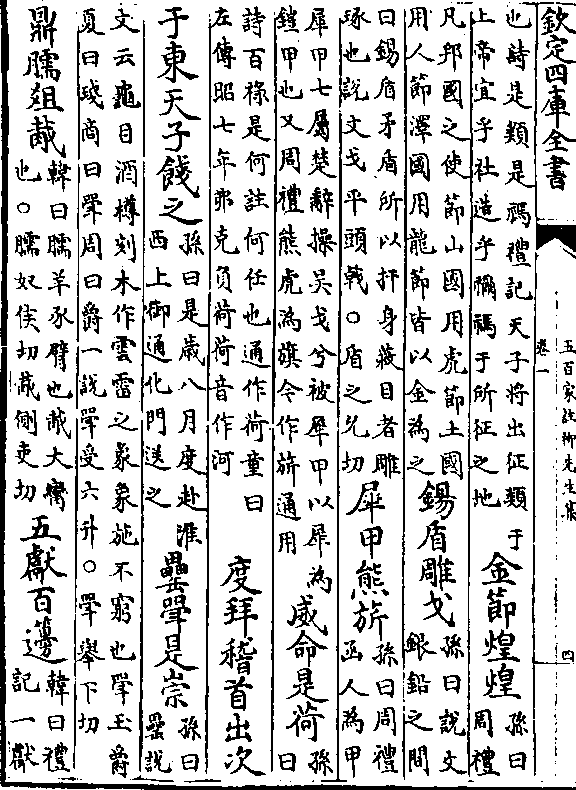 欽定四庫全書
五百家註柳先生集
卷一
四
也詩是類是禡禮記天子將出征類于
上帝宜乎社造乎禰禡于所征之地
金節煌煌
孫曰
周禮
凡邦國之使節山國用虎節土國
用人節澤國用龍節皆以金為之
錫盾雕戈
孫曰說文
銀鉛之間
曰錫盾矛盾所以扞身蔽目者雕
琢也說文戈平頭戟○盾之允切
犀甲熊旂
孫曰周禮
函人為甲
犀甲七屬楚辭操吳戈兮被犀甲以犀為
鎧甲也又周禮熊虎為旗今作旂通用
威命是荷
孫
曰
詩百祿是何註何任也通作荷童曰
左傳昭七年弗克負荷荷音作河
度拜稽首出次
于東天子餞之
孫曰是歲八月度赴淮
西上御通化門送之
罍斝是崇
孫曰
罍說
文云龜目酒樽刻木作雲雷之象象施不窮也斝玉爵
夏曰琖商曰斝周曰爵一說斝受六升○斝舉下切
鼎臑俎胾
韓曰臑羊豕臂也胾大臠
也○臑奴侯切胾側吏切
五獻百籩
韓曰禮
記一獻